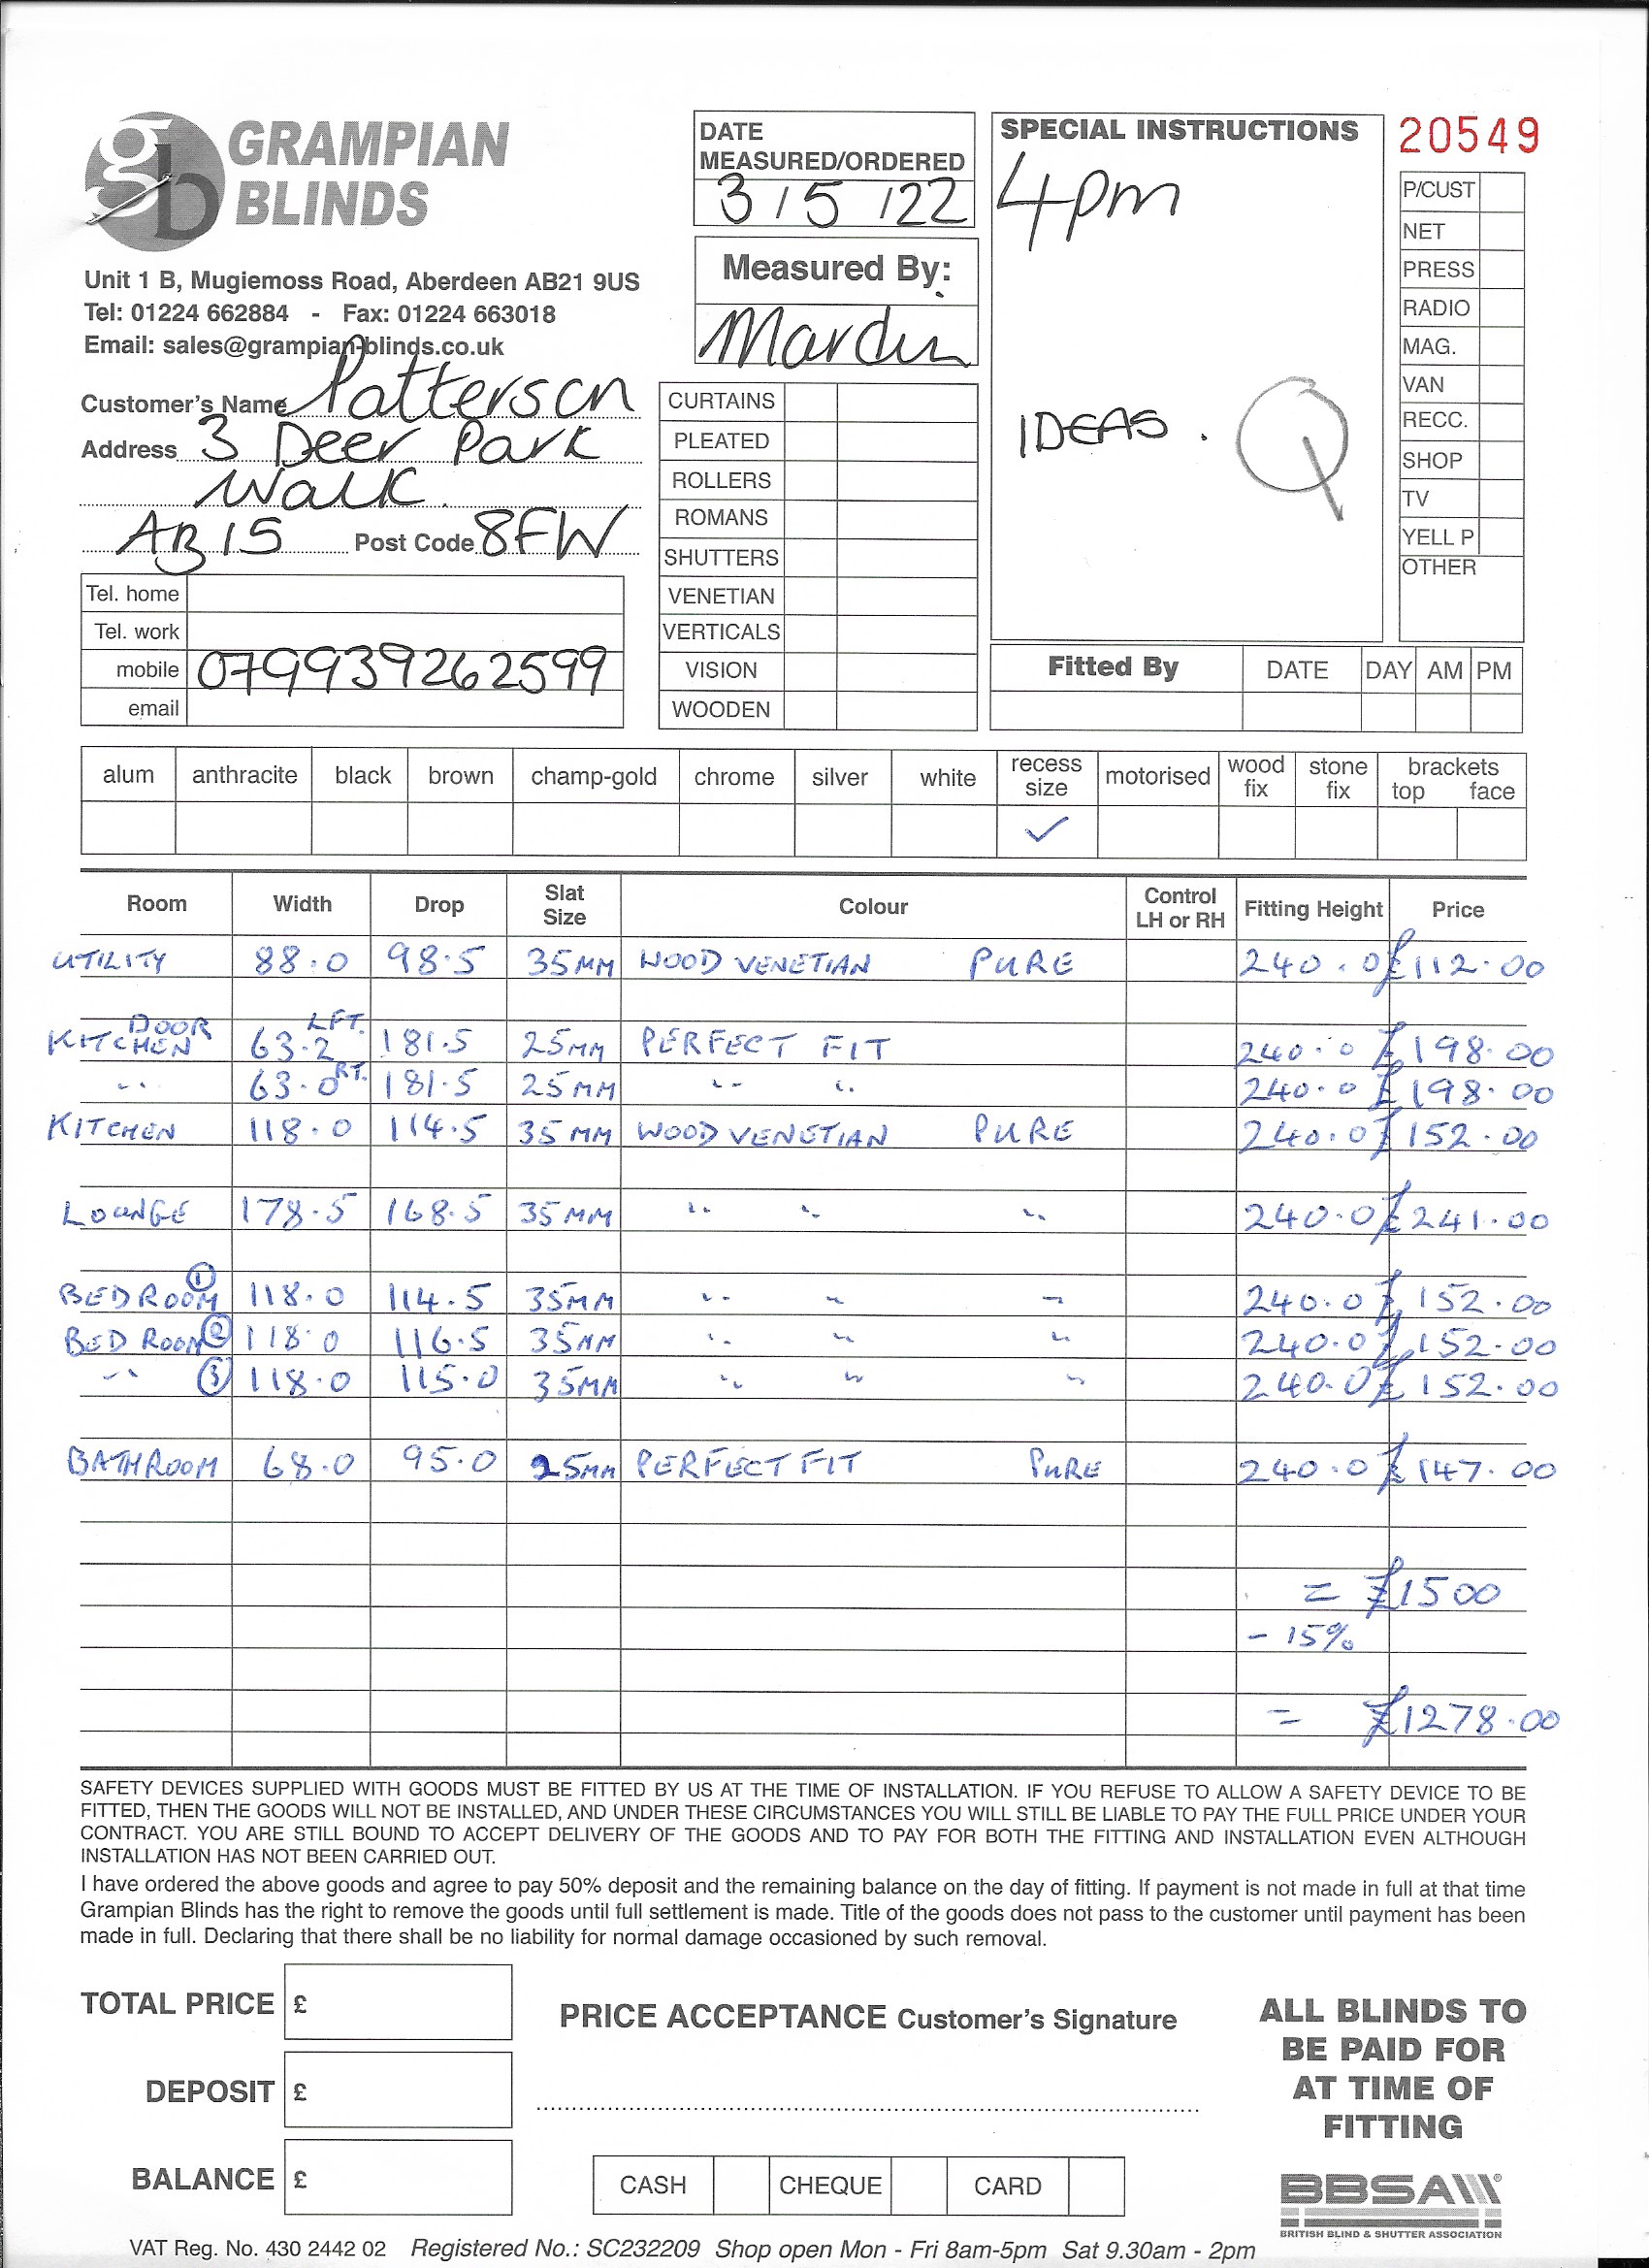 gb GRAMPIAN
BLINDS
Unit 1 B, Mugiemoss Road, Aberdeen AB21 9US
Tel: 01224 662884 - Fax: 01224 663018
Email: sales@grampian-blinds.co.uk
Customer's Name Patterson
Address 3 Deer Park
Walk.
AB15 Post Code 8FW
Tel. home
Tel. work
mobile 079939262599
email
DATE
MEASURED/ORDERED
3/5/22
Measured By:
CURTAINS
PLEATED
ROLLERS
ROMANS
SHUTTERS
VENETIAN
VERTICALS
VISION
WOODEN
SPECIAL INSTRUCTIONS
4pm
IDEAS. Q
20549
P/CUST
NET
PRESS
RADIO
MAG.
VAN
RECC.
SHOP
TV
YELL P
OTHER
Fitted By DATE DAY AM PM
alum anthracite black brown champ-gold chrome silver white recess size motorised wood fix stone fix brackets top face
✓
Room Width Drop Slat Size Colour Control LH or RH Fitting Height Price
UTILITY 88.0 98.5 35MM WOOD VENETIAN PURE 240.0 £112.00
KITCHEN DOOR 63.2 LFT. 181.5 25MM PERFECT FIT 240.0 £198.00
" 63.0 RT. 181.5 25MM " " 240.0 £198.00
KITCHEN 118.0 114.5 35MM WOOD VENETIAN PURE 240.0 £152.00
LOUNGE 178.5 168.5 35MM " " " 240.0 £241.00
BEDROOM ① 118.0 114.5 35MM " " " 240.0 £152.00
BED ROOM ② 118.0 116.5 35MM " " " 240.0 £152.00
" ③ 118.0 115.0 35MM " " " 240.0 £152.00
BATHROOM 68.0 95.0 25MM PERFECT FIT PURE 240.0 £147.00
= £1500
- 15%
= £1278.00
SAFETY DEVICES SUPPLIED WITH GOODS MUST BE FITTED BY US AT THE TIME OF INSTALLATION. IF YOU REFUSE TO ALLOW A SAFETY DEVICE TO BE
FITTED, THEN THE GOODS WILL NOT BE INSTALLED, AND UNDER THESE CIRCUMSTANCES YOU WILL STILL BE LIABLE TO PAY THE FULL PRICE UNDER YOUR
CONTRACT. YOU ARE STILL BOUND TO ACCEPT DELIVERY OF THE GOODS AND TO PAY FOR BOTH THE FITTING AND INSTALLATION EVEN ALTHOUGH
INSTALLATION HAS NOT BEEN CARRIED OUT.
I have ordered the above goods and agree to pay 50% deposit and the remaining balance on the day of fitting. If payment is not made in full at that time
Grampian Blinds has the right to remove the goods until full settlement is made. Title of the goods does not pass to the customer until payment has been
made in full. Declaring that there shall be no liability for normal damage occasioned by such removal.
TOTAL PRICE £
DEPOSIT £
BALANCE £
PRICE ACCEPTANCE Customer's Signature
CASH CHEQUE CARD
ALL BLINDS TO
BE PAID FOR
AT TIME OF
FITTING
BBSA
BRITISH BLIND & SHUTTER ASSOCIATION
VAT Reg. No. 430 2442 02 Registered No.: SC232209 Shop open Mon - Fri 8am-5pm Sat 9.30am - 2pm